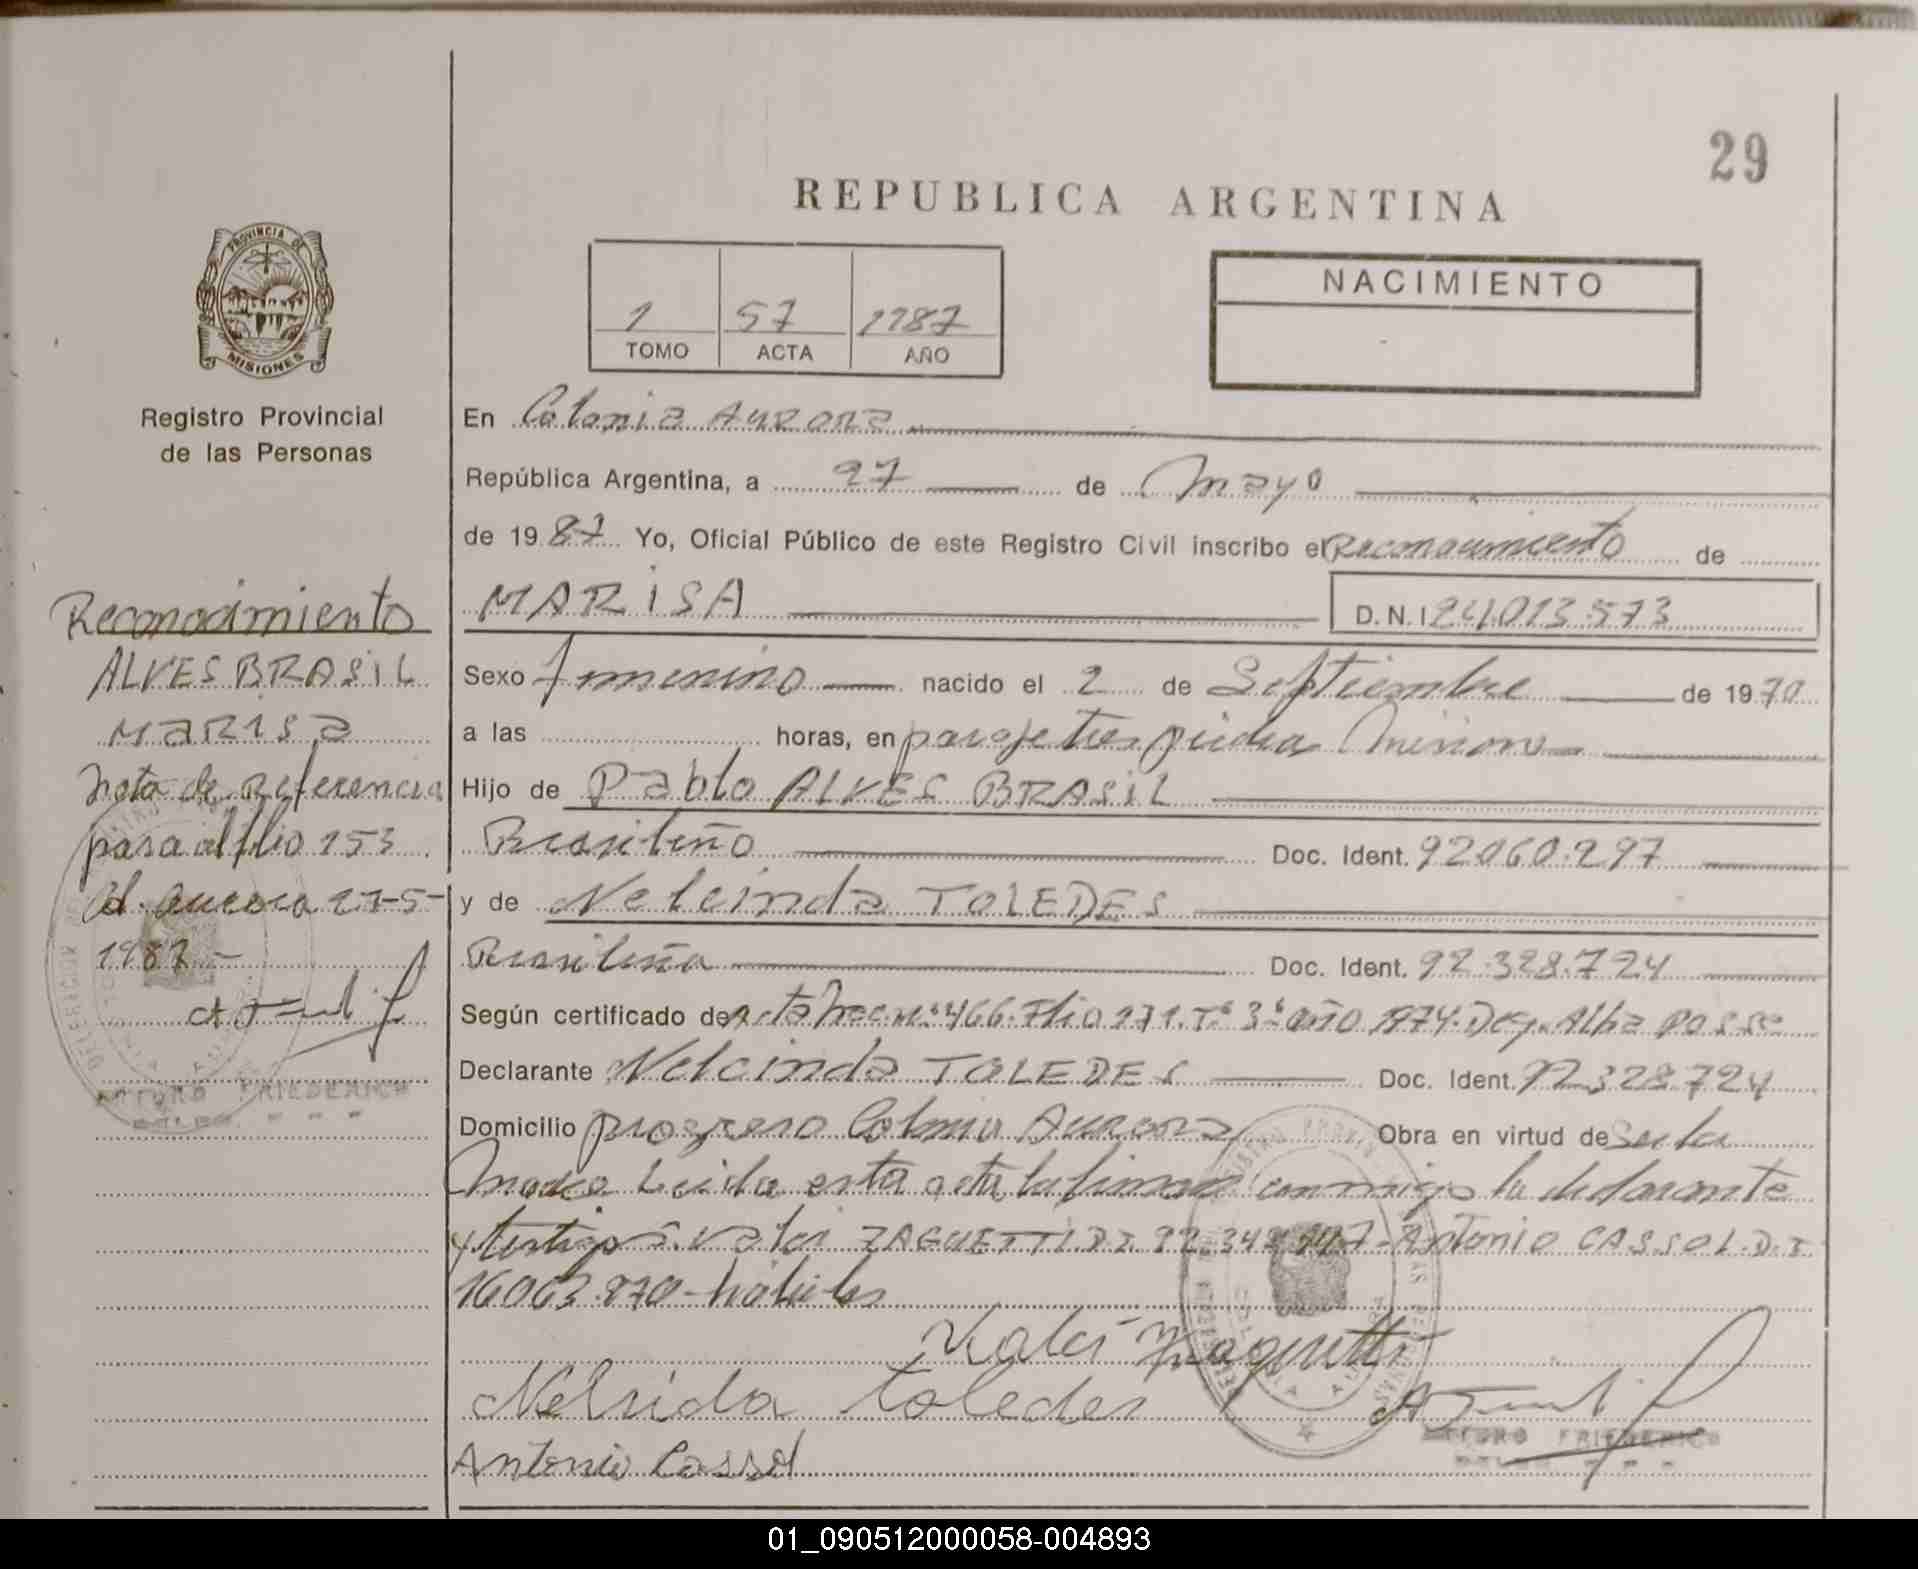 29
REPUBLICA ARGENTINA
PROVINCIA DE
MISIONES
Registro Provincial
de las Personas
1 57 1987
TOMO ACTA AÑO
NACIMIENTO
En Colonia Aurora
República Argentina, a 27 de Mayo
de 1987 Yo, Oficial Público de este Registro Civil inscribo el Reconocimiento de
MARISA D.N.I 24.013.573
Sexo femenino nacido el 2 de Septiembre de 1970
a las horas, en paraje tres piedras Misiones
Hijo de Pablo ALVES BRASIL
Brasileño Doc. Ident. 92.060.297
y de Nelcinda TOLEDES
Brasileña Doc. Ident. 92.328.724
Según certificado de Acta Nac. Nº 466. Flio 171. Tº 3º año 1974. Deg. Alba Posse
Declarante Nelcinda TOLEDES Doc. Ident. 92.328.724
Domicilio progreso Colonia Aurora Obra en virtud de Ser la
Madre Leida esta acta la firman conmigo la declarante
y testigos. Valci ZAGUETTI D.I. 92.342. Antonio CASSOL. D.I
16063.870 - hábiles
Valci Zaguetti
Nelsida Toledes
Antonio Cassol
ARTURO FRIEDERICH
Reconocimiento
ALVES BRASIL
MARISA
Nota de Referencia
pasa al flio 153
Col. Aurora 27-5-
1987 -
ARTURO FRIEDERICH
01_090512000058-004893